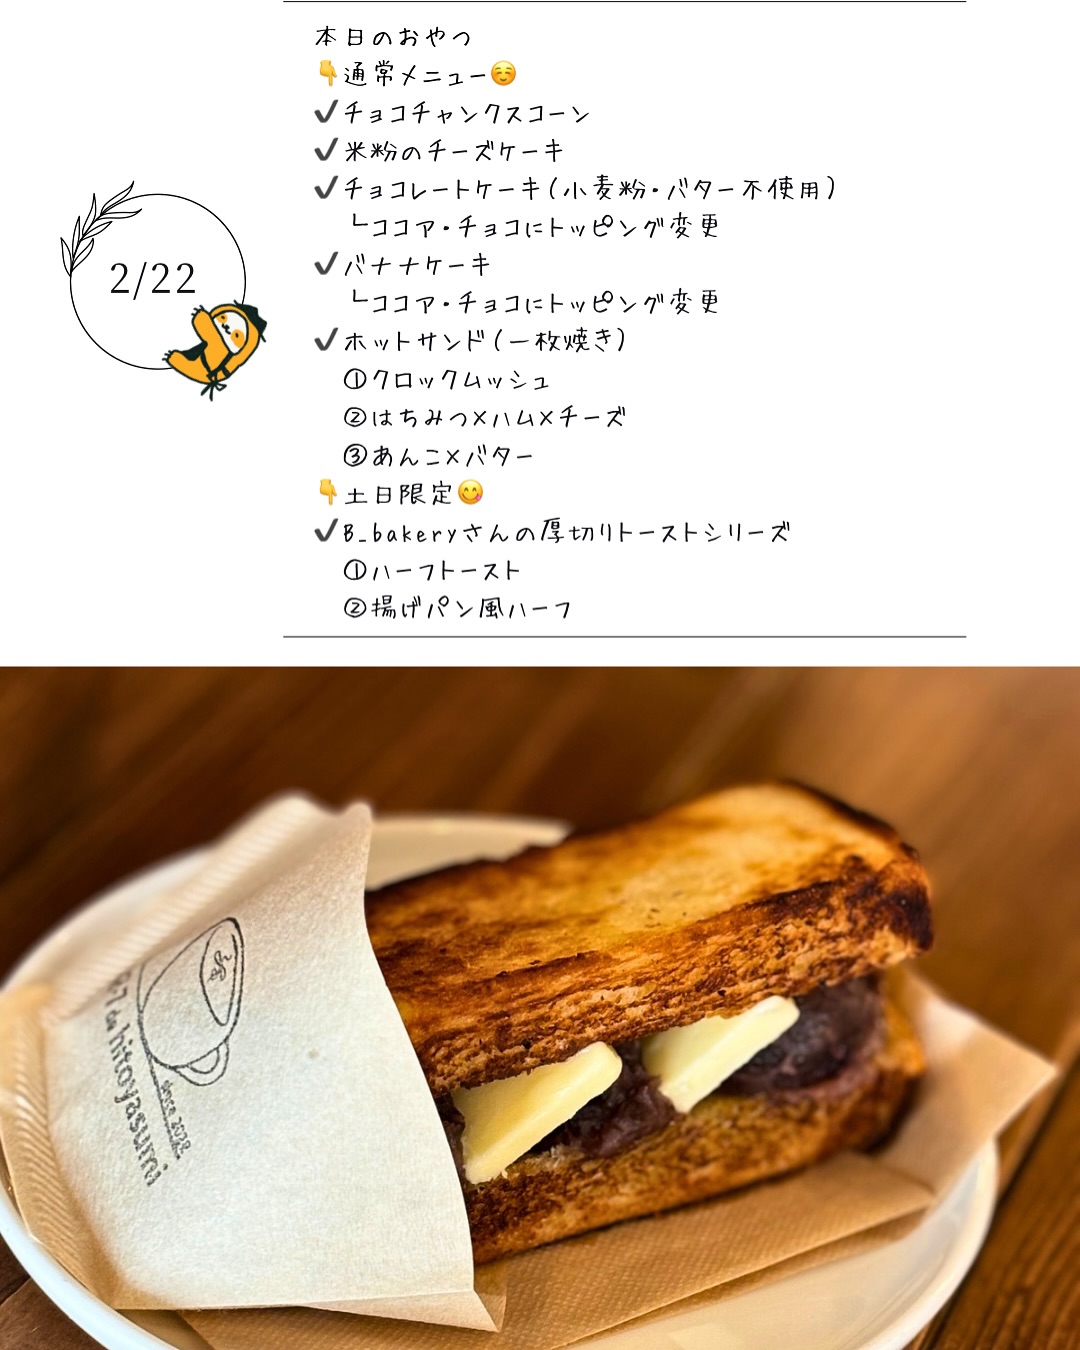 本日のおやつ
👇通常メニュー☺️
✔チョコチャンクスコーン
✔米粉のチーズケーキ
✔チョコレートケーキ(小麦粉・バター不使用)
┗ココア・チョコにトッピング変更
✔バナナケーキ
┗ココア・チョコにトッピング変更
✔ホットサンド(一枚焼き)
①クロックムッシュ
②はちみつ×ハム×チーズ
③あんこ×バター
👇土日限定😋
✔B_bakeryさんの厚切りトーストシリーズ
①ハーフトースト
②揚げパン風ハーフ
2/22
de hitoyasumi
since